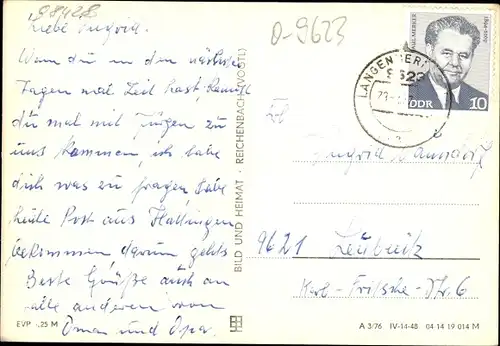 98428
Liebe Ingrid.
Wenn du in den nächsten
Tagen mal Zeit hast kannst
du mal mit Jürgen zu
uns kommen, ich habe
dich was zu fragen, habe
heute Post aus Hattingen
bekommen darum gehts
Beste Grüße auch an
alle anderen von
Oma und Opa.
EVP 0,25 M
BILD UND HEIMAT · REICHENBACH (VOGTL)
0-9623
PAUL MERKER
1894-1969
DDR 10
9623
Ingrid
9621 Leubnitz
Karl-Fritsche-Str. 6
A 3/76 IV-14-48 04 14 19 014 M